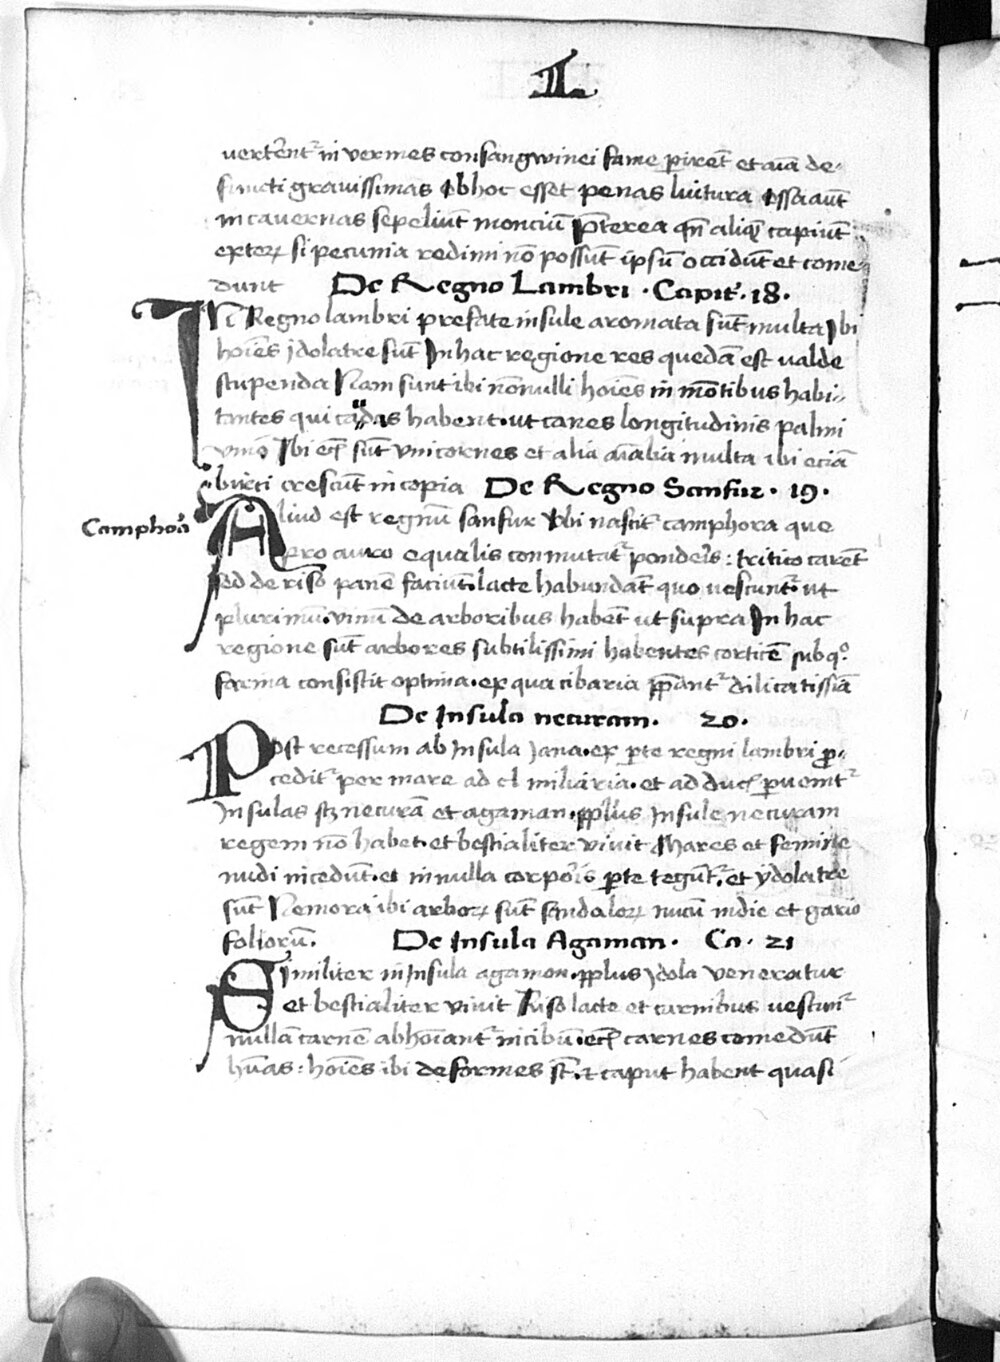 II
vert̃ent᷑ in vermes consangwinei fame ꝑirẽt et aĩa de-
functi grauissimas Ob hoc esset penas luitura Ossa aũt
in cavernas sepeliũt monciũ P̃terea qñ aliqͥ capiũt
exteꝝ si pecunia redimi nõ possũt ipsũ occidũt et come
dunt De Regno Lambri . Capit̃. 18.
IN Regno lambri prefate insule aromata sũt multa Ibi
hoĩes jdolatre sũt In hac regione res quedã est valde
stupenda Nam sunt ibi nõnulli hoĩes in mõtibus habi-
tantes qui cãdas habent. ut canes longitudinis palmi
vniᵒ Ibi ec̃ sũt vnicornes et alia aĩalia multa ibi eciã
birci crescũt in copia De Regno Sanfur . 19.
Camphoͬa
Aliud est regnũ sanfur Vbi nascit᷑ camphora que
pro auro equalis conmutat᷑ ponderis : tritico carẽt
sed de riso panẽ faciũt. lacte habundãt quo vescunt᷑. ut
plurimũ. vinũ de arboribus habẽt ut supra In hac
regione sũt arbores subtilissimi habentes corticẽ sub qᵒ.
farina consistit optima. ex qua cibaria p̃pant᷑ dilicatissiã
De Insula necuram. 20.
Post recessum ab Insula Jana. ex ꝑte regni lambri ꝓ-
cedit᷑ per mare ad cl miliaria. et ad duas ꝑuenit᷑
Insulas sꝫ necurã et agaman. pp̃lus Insule necuram
regem nõ habet. et bestialiter vivit Mares et femine
nudi incedũt. et in nulla corporis ꝑte tegũt᷑. et ydolatre
sũt Nemora ibi arboꝝ sũt sandaloꝝ nucũ indie et gario
foliorũ. De Insula Agaman. Ca. 21
Similiter in Insula agaman. pp̃lus Jdola veneratur
et bestialiter vivit Riso lacte et carnibus vescunt᷑
nullã carnẽ abhoĩant᷑ in cibũ. ec̃ carnes comedũt
hũas : hoĩes ibi deformes st̃. et caput habent quasi